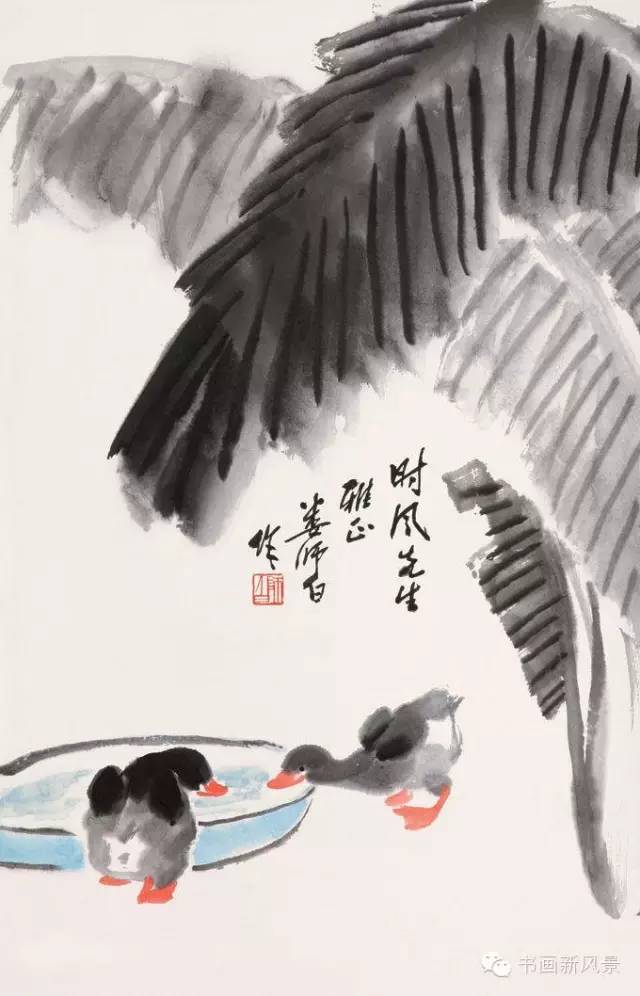 时风先生
雅正
娄师白
作
书画新风景